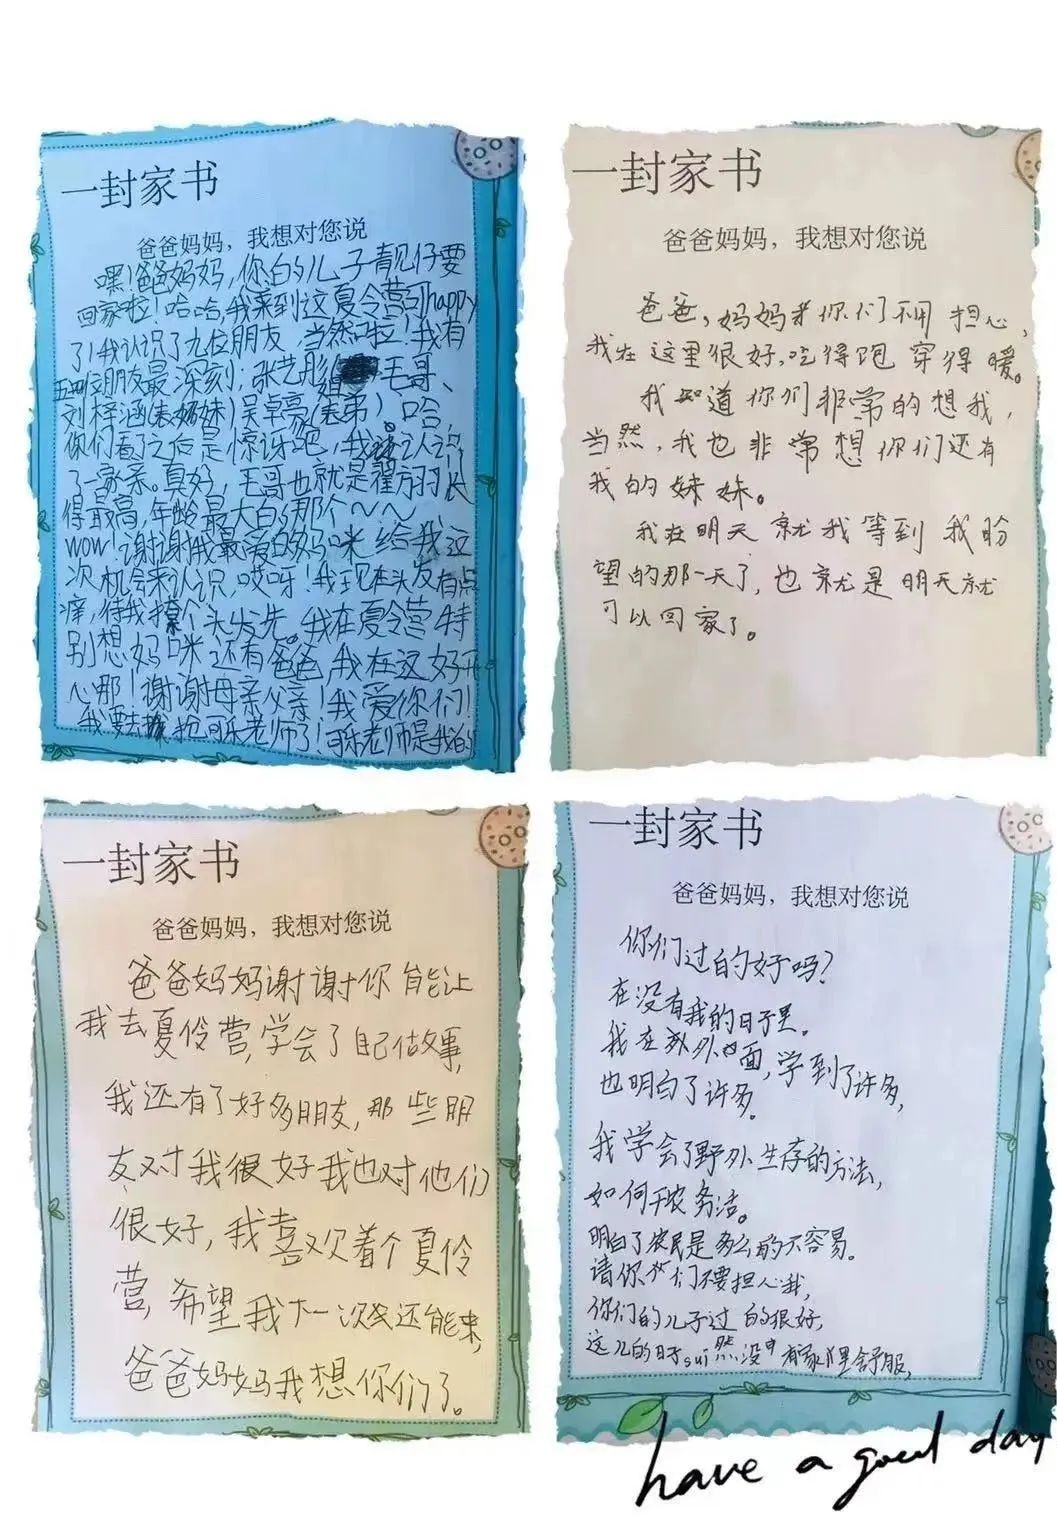 一封家书
爸爸妈妈，我想对您说
嘿！爸爸妈妈，您的儿子靓仔要
回家啦！哈哈，我来到这夏令营可happy
了！我认识了九位朋友 当然啦！我有
朋友最深刻：张艺彤 毛哥、
刘梓涵(表妹)吴卓豪(表弟)。哈，
你们看了之后是惊讶吧，我认识
了一家亲。真好，毛哥也就是翟方羽长
得最高，年龄最大的那个～～
wow！谢谢我最爱的妈咪给我这
次机会来认识，哎呀！我现在头发有点
痒，待我挠个头发先。我在夏令营特
别想妈咪还有爸爸，我在这好开
心那！谢谢母亲父亲！我爱你们！
我要去找可乐老师了！可乐老师是我的
一封家书
爸爸妈妈，我想对您说
爸爸，妈妈你们不用担心，
我在这里很好，吃得饱 穿得暖。
我知道你们非常的想我，
当然，我也非常想你们还有
我的妹妹。
我在明天就我等到我盼
望的那一天了，也就是明天就
可以回家了。
一封家书
爸爸妈妈，我想对您说
爸爸妈妈谢谢你能让
我去夏伶营，学会了自己做事，
我还有了好多朋友，那些朋
友对我很好我也对他们
很好，我喜欢着个夏伶
营，希望我下一次还能来，
爸爸妈妈我想你们了。
一封家书
爸爸妈妈，我想对您说
你们过的好吗？
在没有我的日子里。
我在外面，学到了许多，
也明白了许多。
我学会了野外生存的方法，
如何干农务活。
明白了农民是多么的不容易。
请你们不要担心我，
你们的儿子过的很好，
这儿的日子sui然没有家里舒服，
have a good day